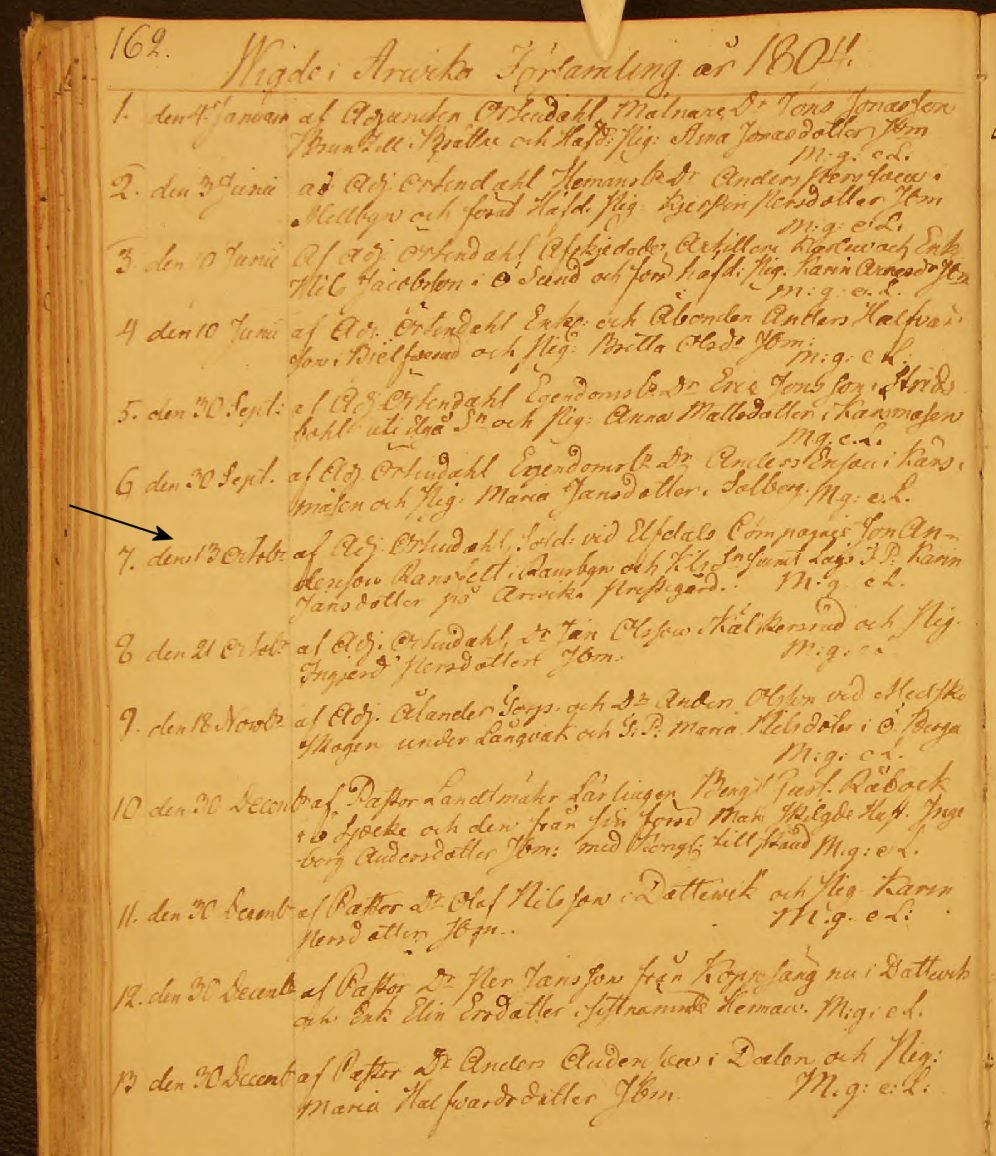 162.
Wigde i Arwika Församling år 1804.
1. den 4 Januarii af Adjuncten Örtendahl, Målnare Dr Jöns Jonasson
Brun till Brättne och Hafd: Pig: Anna Jonasdotter Ibm
M: g: e L.
2. den 3 Junii af Adj Örtendahl Hemansb. Dr Anders
och förut Hafd. Pig Persdotter Ibm
M: g: e: L.
3. den 10 Junii Af Adj Örtendahl Afskedade Artillerie och Enk
Jacobsson i Ö Sund och förr hafd: Pig. Karin Ibm
M: g: e. L.
4 den 10 Junii af Adj: Örtendahl Enkl: och Åbonden Anders Halfvar
son i och Pig: Britta Olsdr Ibm:
M: g: e L:
5. den 30 Sept: af Adj Örtendahl Egendomsb. Dr Eric Jonsson i Strids
bohl uti Sn och Pig: Anna Mattsdotter i Kansmasen
M g. e. L.
6 den 30 Sept. af Adj Örtendahl Egendomsb. Dr Anders Ersson i Kans
måsen och Pig: Maria Jansdotter i Solberg. M g: e. L.
7. den 13 Octobr af Adj. Örtendahl, Sold: vid Elfdals Compagnie Jon An-
dersson Ransbett i Ransbyn och Sn samt Lags F. P. Karin
Jansdotter på Arwika Prestegård. M: g e L.
8 den 21 Octobr af Adj. Örtendahl, Dr Jan Olsson i Kälkerud och Pig.
Ingjerd Persdotter Ibm. M: g: e L
9. den 18 Novbr af Adj. Ålander Torp. och Dr Anders Olsson vid Medskog
Skogen under Långvak och F: P: Maria Nilsdotter i Ö Berga
M: g: e L.
10 den 30 Decemb af Pastor Landtmätr Lärlingen Bengt Gust. Råbock
i Ö Sjöeke och den från sin förra Man skilgde Hust. Inge
borg Andersdotter Ibm: med Kongl: tillstånd M. g: e L.
11. den 30 Decemb af Pastor Dr Olof Nilsson i Dottewik och Pig Karin
Persdotter Ibm. M. g. e L:
12. den 30 Decemb af Pastor Dr Per Jansson från Köpsesäng nu i Dottevik
och Enk Elin Ersdotter i sistnamnde Heman. M: g: e L.
13 den 30 Decemb af Pastor Dr Anders Andersson i Dalen och Pig:
Maria Halfvardsdotter Ibm. M: g: e: L: